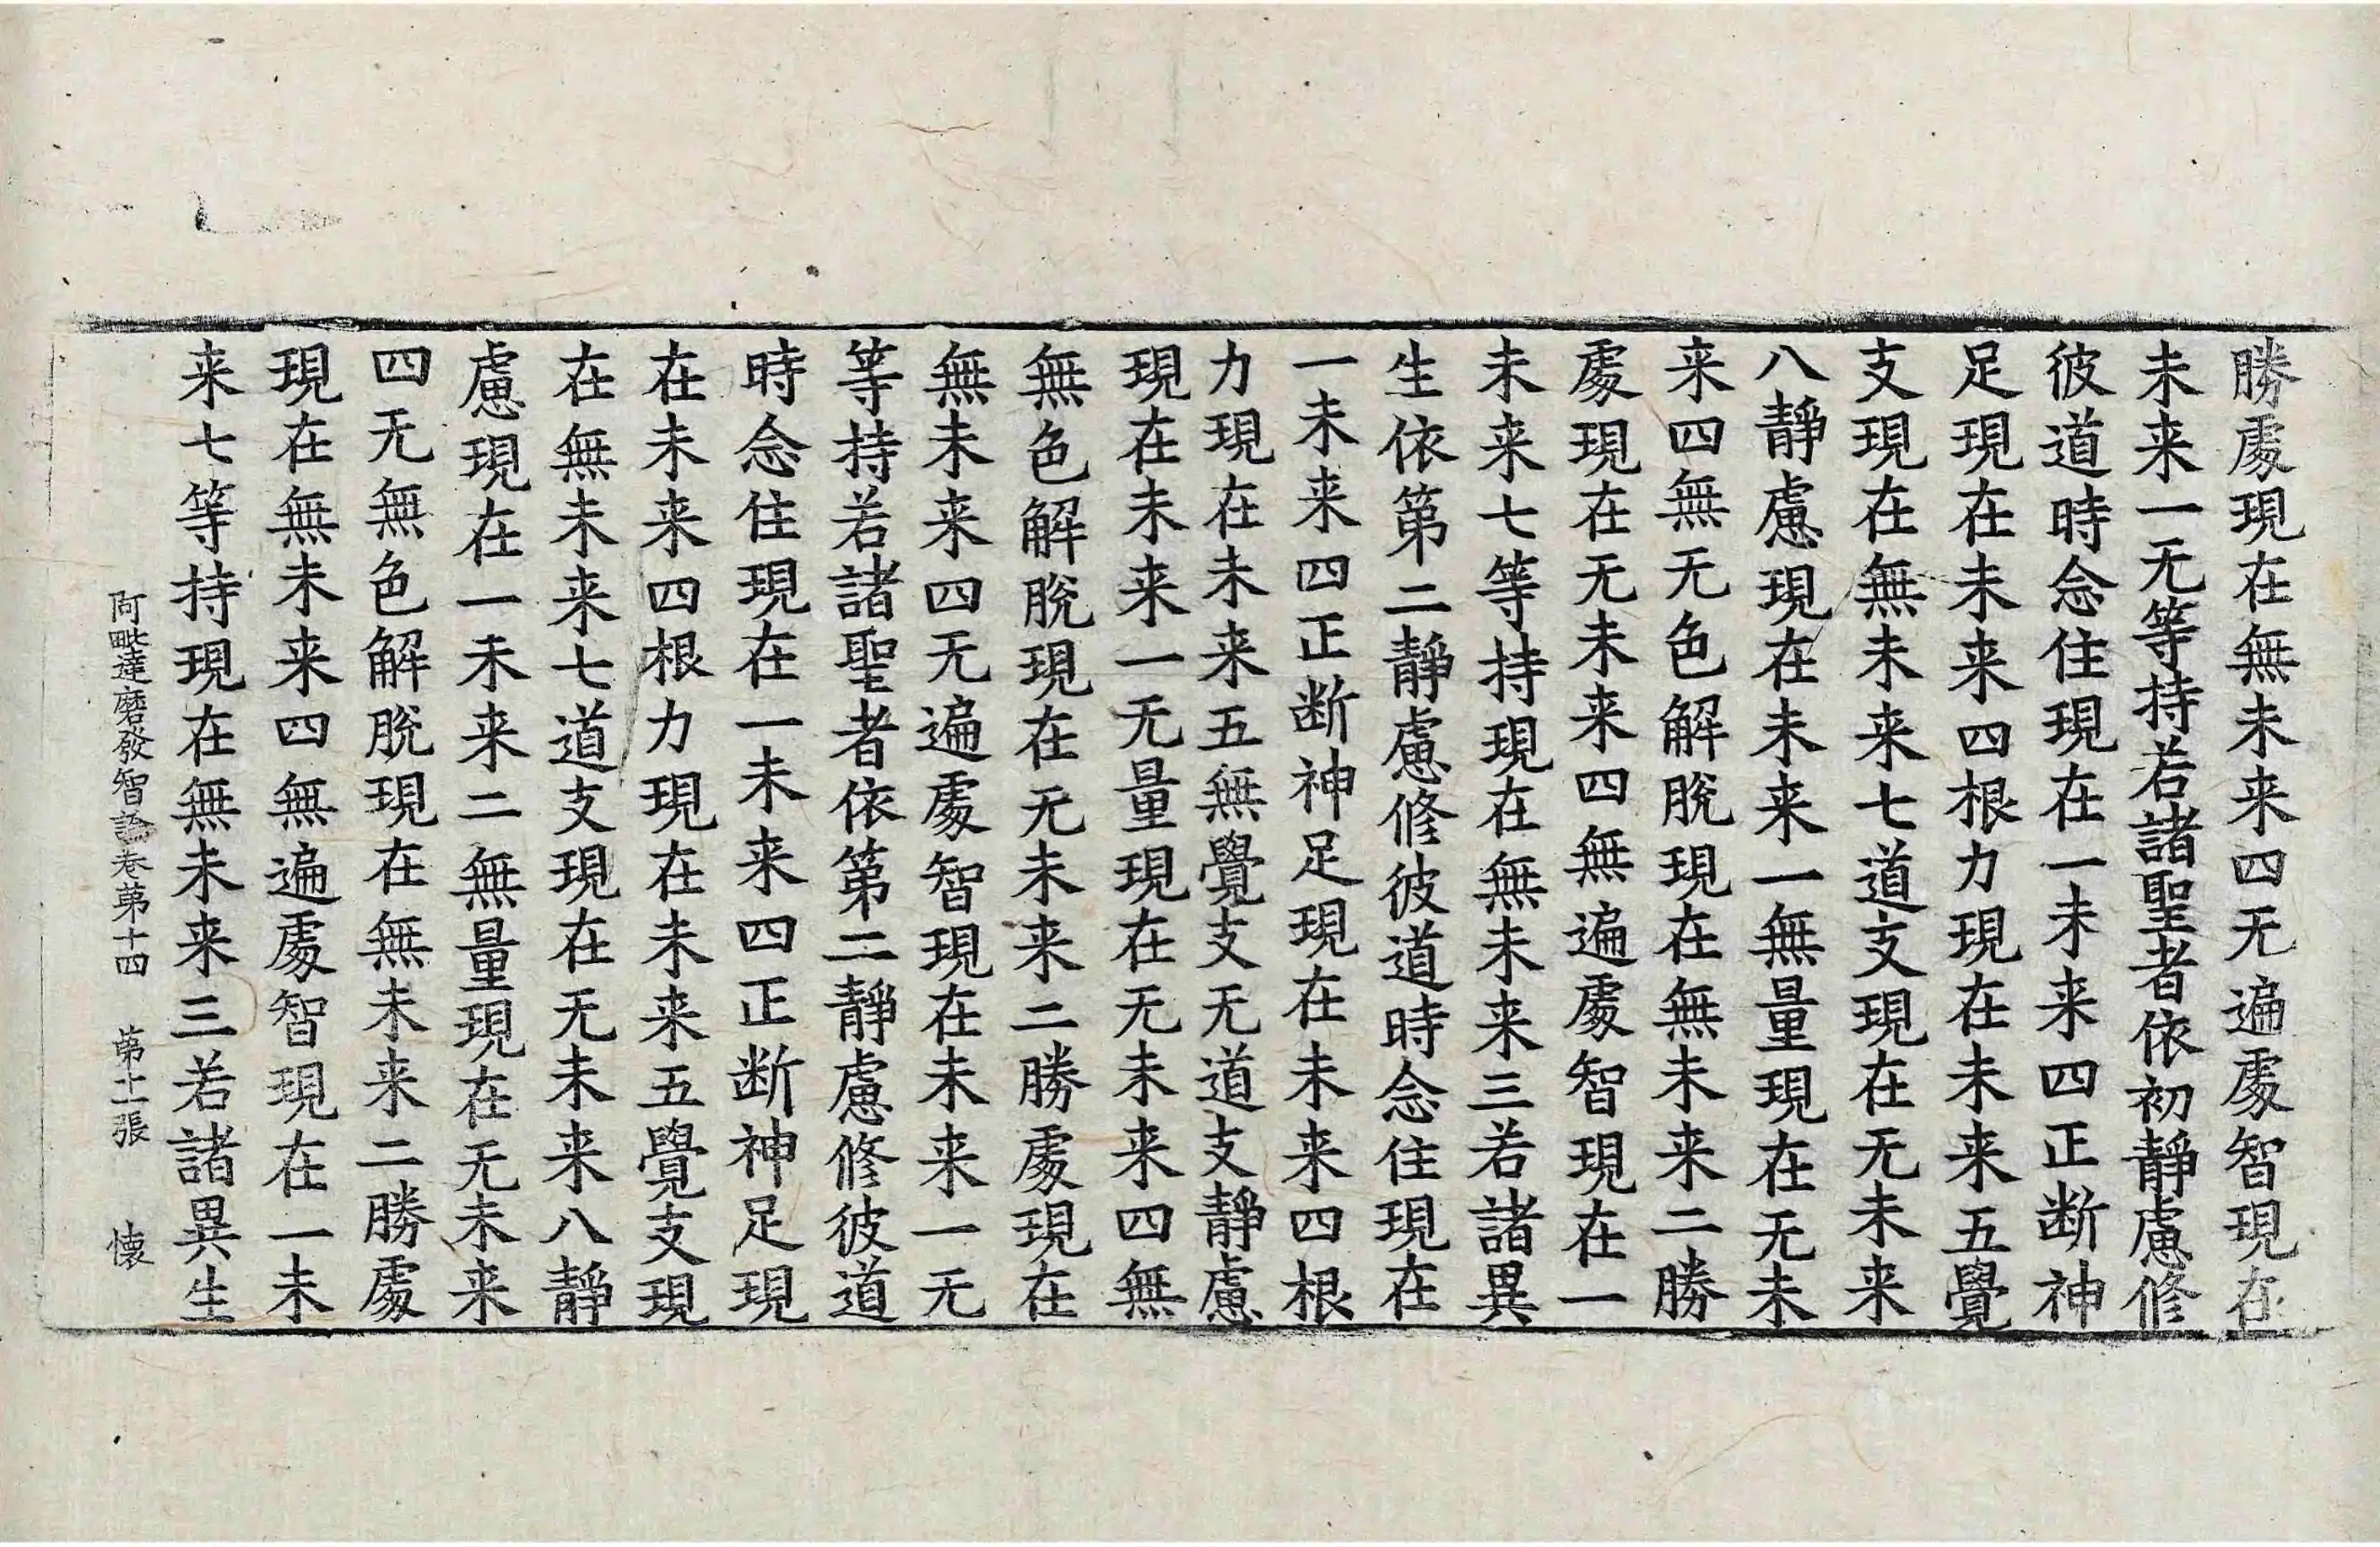 勝處現在無未来四无遍處智現在
未来一无等持若諸聖者依初靜慮修
彼道時念住現在一未来四正断神
足現在未来四根力現在未来五覺
支現在無未来七道支現在无未来
八靜慮現在未来一無量現在无未
来四無无色解脫現在無未来二勝
處現在无未来四無遍處智現在一
未来七等持現在無未来三若諸異
生依第二靜慮修彼道時念住現在
一未来四正断神足現在未来四根
力現在未来五無覺支无道支靜慮
現在未来一无量現在无未来四無
無色解脫現在无未来二勝處現在
無未来四无遍處智現在未来一无
等持若諸聖者依第二靜慮修彼道
時念住現在一未来四正断神足現
在未来四根力現在未来五覺支現
在無未来七道支現在无未来八靜
慮現在一未来二無量現在无未来
四无無色解脫現在無未来二勝處
現在無未来四無遍處智現在一未
来七等持現在無未来三若諸異生
阿毗達磨發智論卷第十四 第十一張 懐